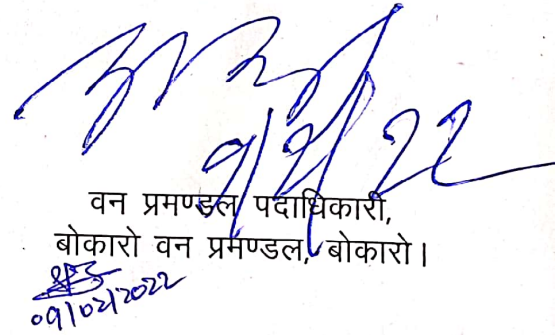 9/2/22
वन प्रमण्डल पदाधिकारी,
बोकारो वन प्रमण्डल, बोकारो।
09/02/2022